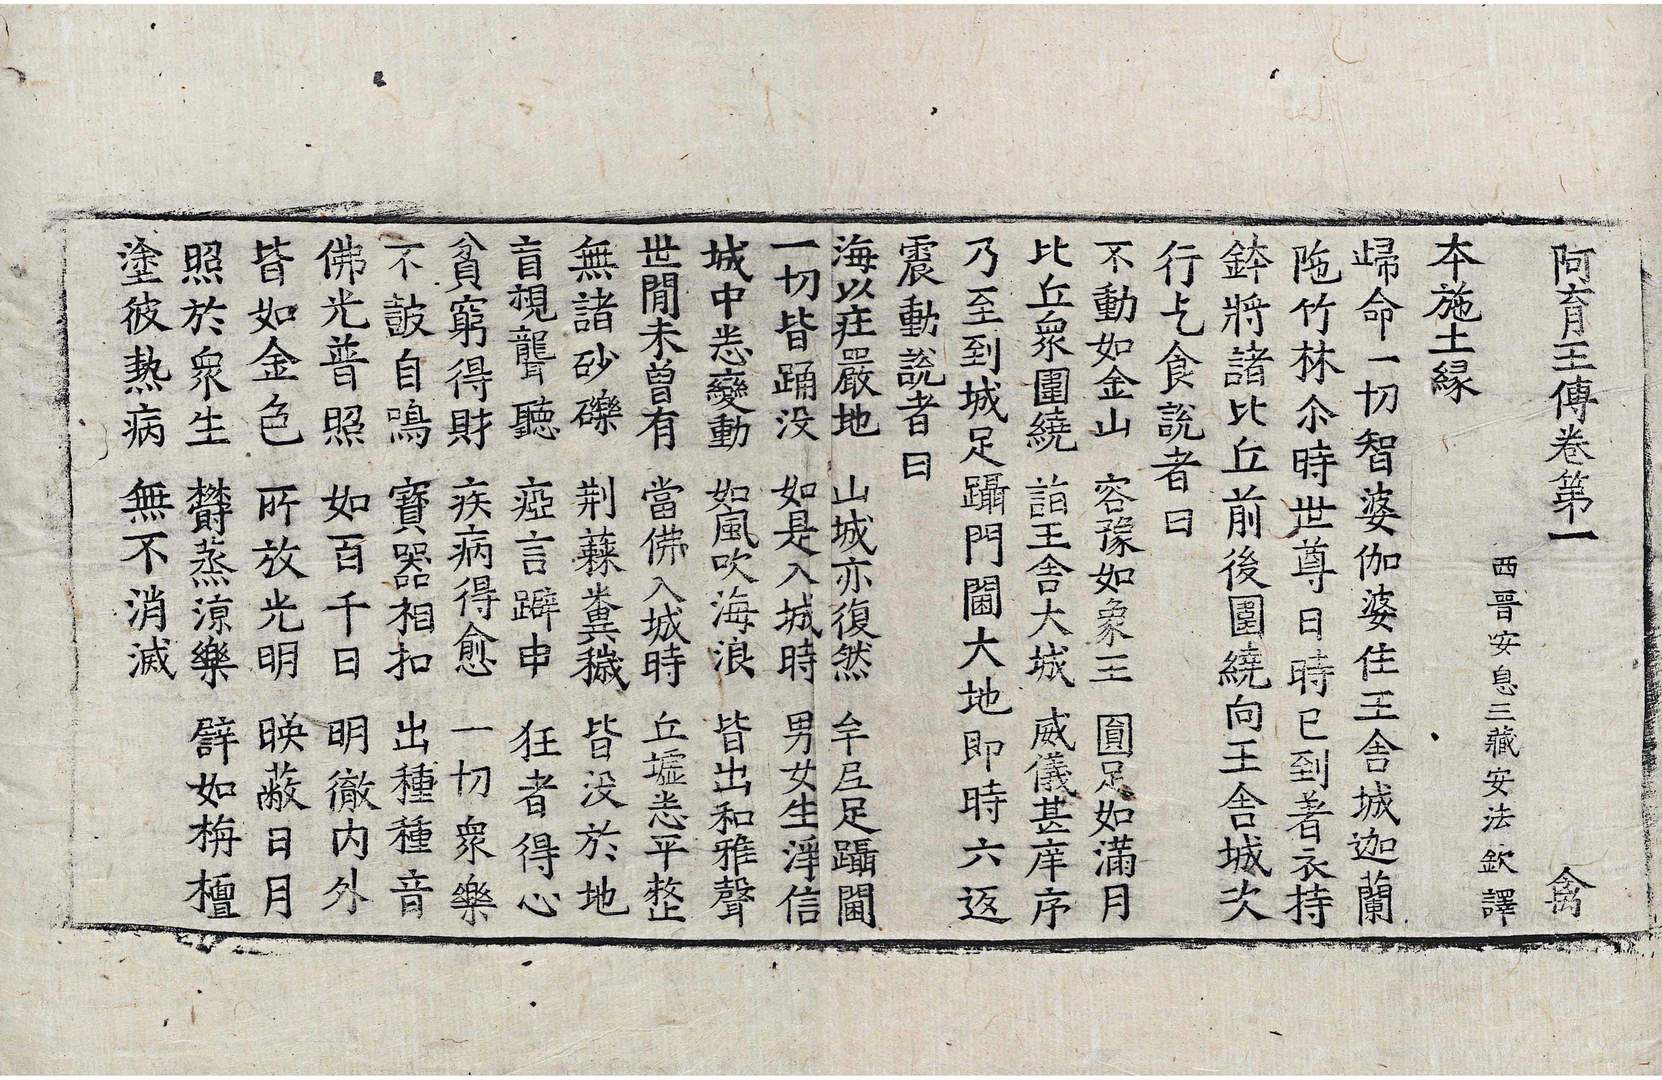 阿育王傳卷第一　禽
西晉安息三藏安法欽譯
本施土緣
歸命一切智婆伽婆住王舍城迦蘭
陁竹林尒時世尊日時已到著衣持
鉢將諸比丘前後圍繞向王舍城次
行乞食說者曰
不動如金山　容豫如象王　圓足如滿月
比丘衆圍繞　詣王舍大城　威儀甚庠序
乃至到城足躡門閫大地即時六返
震動說者曰
海以莊嚴地　山城亦復然　牟尼足躡閫
一切皆踊没　如是入城時　男女生淨信
城中悉變動　如風吹海浪　皆出和雅聲
世間未曾有　當佛入城時　丘墟悉平整
無諸砂礫　荆蕀糞穢　皆没於地
盲視聾聽　瘂言躃申　狂者得心
貧窮得財　疾病得愈　一切衆樂
不鼓自鳴　寶器相扣　出種種音
佛光普照　如百千日　明徹内外
皆如金色　所放光明　暎蔽日月
照於衆生　欝蒸涼樂　譬如栴檀
塗彼熱病　無不消滅